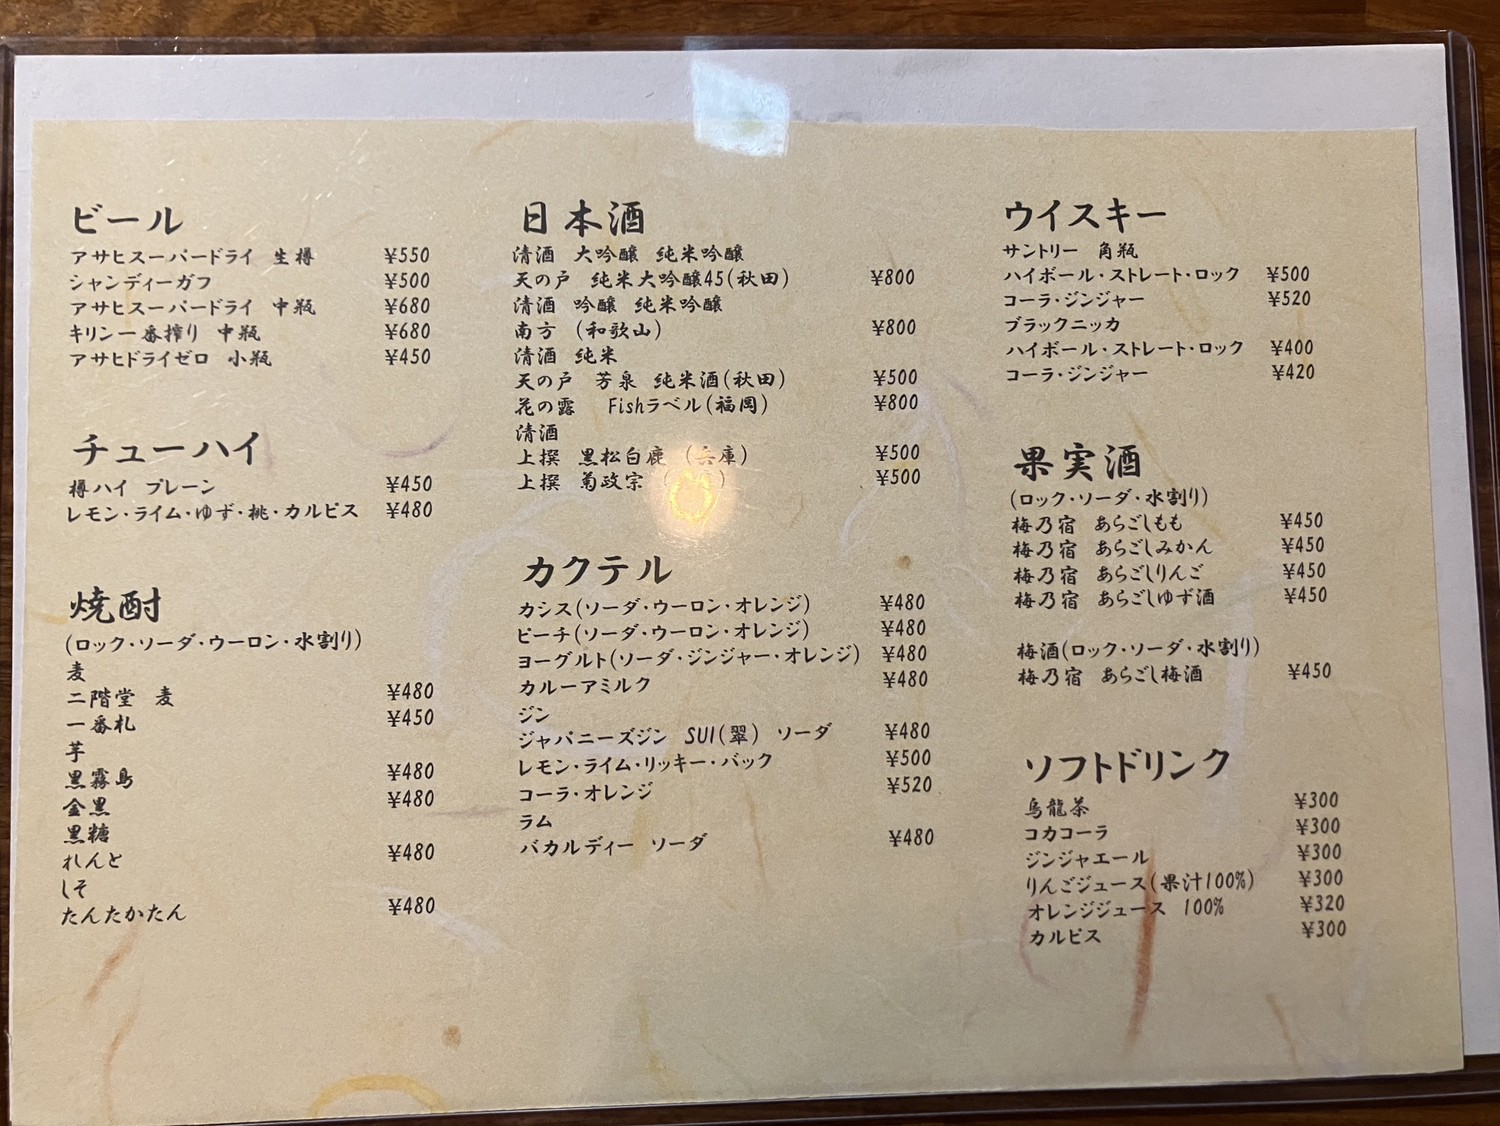 ビール
アサヒスーパードライ 生樽 ¥550
シャンディーガフ ¥500
アサヒスーパードライ 中瓶 ¥680
キリン一番搾り 中瓶 ¥680
アサヒドライゼロ 小瓶 ¥450
チューハイ
樽ハイ プレーン ¥450
レモン・ライム・ゆず・桃・カルピス ¥480
焼酎
(ロック・ソーダ・ウーロン・水割り)
麦
二階堂 麦 ¥480
一番札 ¥450
芋
黒霧島 ¥480
金黒 ¥480
黒糖
れんと ¥480
しそ
たんたかたん ¥480
日本酒
清酒 大吟醸 純米吟醸
天の戸 純米大吟醸45(秋田) ¥800
清酒 吟醸 純米吟醸
南方 (和歌山) ¥800
清酒 純米
天の戸 芳泉 純米酒(秋田) ¥500
花の露 Fishラベル(福岡) ¥800
清酒
上撰 黒松白鹿 (兵庫) ¥500
上撰 菊政宗 ¥500
カクテル
カシス(ソーダ・ウーロン・オレンジ) ¥480
ピーチ(ソーダ・ウーロン・オレンジ) ¥480
ヨーグルト(ソーダ・ジンジャー・オレンジ) ¥480
カルーアミルク ¥480
ジン
ジャパニーズジン SUI(翠) ソーダ ¥480
レモン・ライム・リッキー・バック ¥500
コーラ・オレンジ ¥520
ラム
バカルディー ソーダ ¥480
ウイスキー
サントリー 角瓶
ハイボール・ストレート・ロック ¥500
コーラ・ジンジャー ¥520
ブラックニッカ
ハイボール・ストレート・ロック ¥400
コーラ・ジンジャー ¥420
果実酒
(ロック・ソーダ・水割り)
梅乃宿 あらごしもも ¥450
梅乃宿 あらごしみかん ¥450
梅乃宿 あらごしりんご ¥450
梅乃宿 あらごしゆず酒 ¥450
梅酒(ロック・ソーダ・水割り)
梅乃宿 あらごし梅酒 ¥450
ソフトドリンク
烏龍茶 ¥300
コカコーラ ¥300
ジンジャエール ¥300
りんごジュース(果汁100%) ¥300
オレンジジュース 100% ¥320
カルピス ¥300